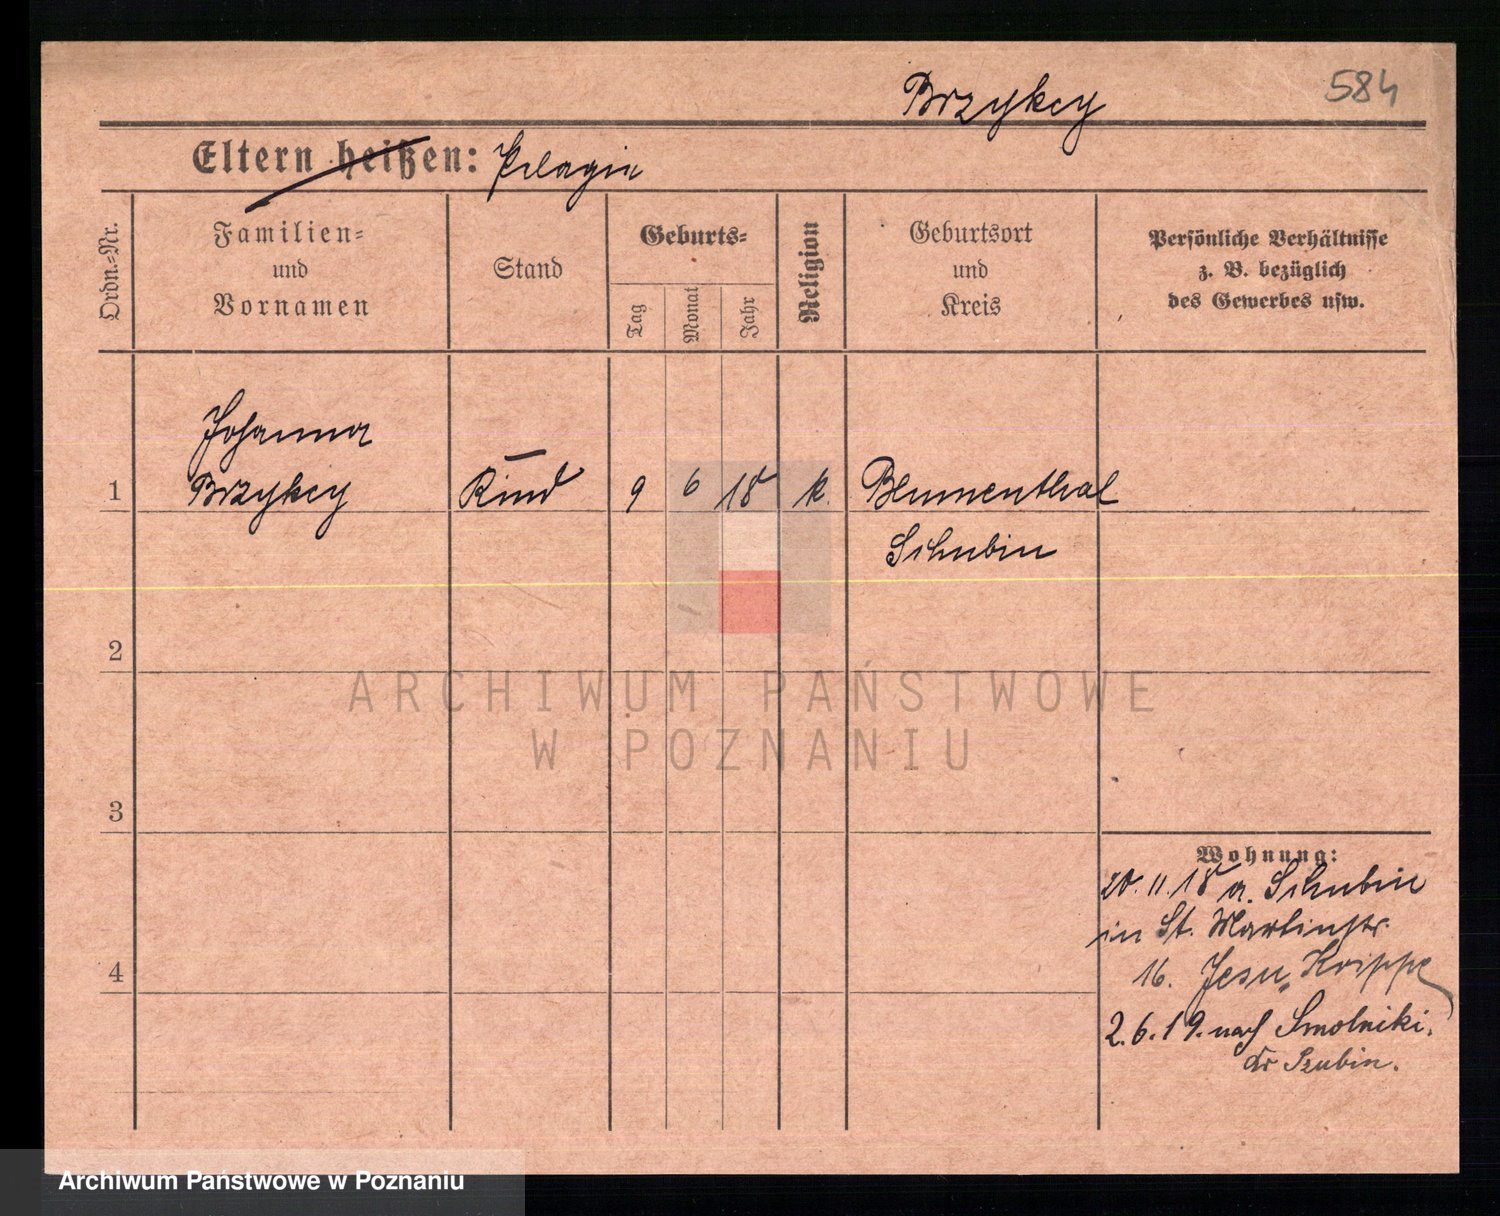 Brzykcy
584
Eltern heißen: Pelagia
Ordn.=Nr.
Familien=
und
Vornamen
Stand
Geburts=
Tag
Monat
Jahr
Religion
Geburtsort
und
Kreis
Persönliche Verhältnisse
z. B. bezüglich
des Gewerbes usw.
Johanna
1 Brzykcy Kind 9 6 18 k. Blumenthal
Schubin
2
ARCHIWUM PAŃSTWOWE
W POZNANIU
3
Wohnung:
20.11.18 a. Schubin
in St. Martinstr.
4
16. Jesu „Krippe
2.6.19. nach Smolniki.
Kr Szubin.
Archiwum Państwowe w Poznaniu